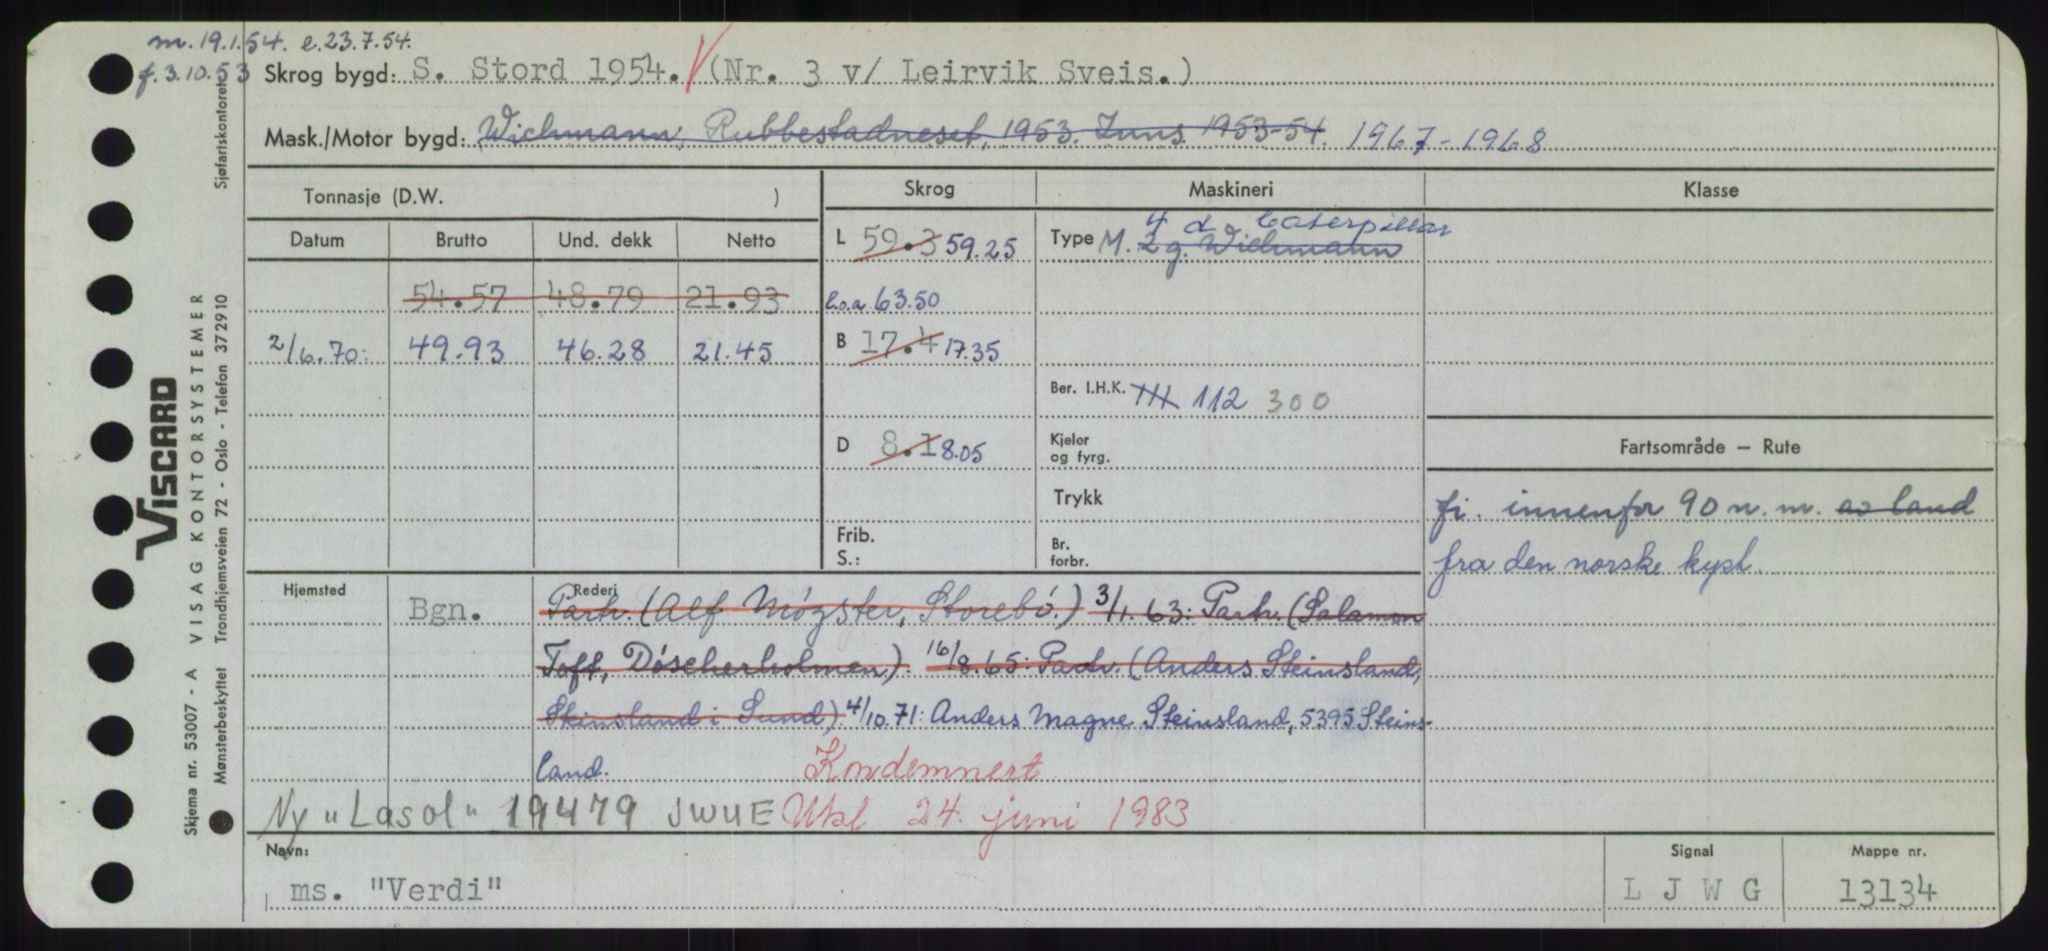 m. 19.1.54. e. 23.7.54.
f. 3.10.53 Skrog bygd: S. Stord 1954. (Nr. 3 v/ Leirvik Sveis.)
Mask./Motor bygd: Wichmann, Rubbestadneset, 1953. Inns. 1953-54. 1967-1968
Tonnasje (D.W. ) Skrog Maskineri Klasse
Datum Brutto Und. dekk Netto
4 d Caterpillar
L 59.3 59.25 Type M. 2 g. Wichmann
54.57 48.79 21.93 l.o.a 63.50
2/6.70: 49.93 46.28 21.45 B 17.4 17.35
Ber. I.H.K. 111 112 300
D 8.1 8.05 Kjeler og fyrg. Fartsområde — Rute
Trykk
fi. innenfor 90 n.m. av land
Frib. S.: Br. forbr.
fra den norske kyst.
Hjemsted Rederi
Bgn. Partr. (Alf Møgster, Storebø.) 3/1.63: Partr. (Salamon
Toft, Døscherholmen). 16/8.65: Partr. (Anders Steinsland,
Steinsland i Sund). 4/10.71: Anders Magne Steinsland, 5395 Steins-
land. Kondemnert
Ny "Lasol" 19479 JWUE Utsl 24. juni 1983
Navn: Signal Mappe nr.
ms. "Verdi" L J W G 13134
Sjøfartskontoret
VISCARD
VISAG KONTORSYSTEMER
Skjema nr. 53007 - A
Mønsterbeskyttet Trondhjemsveien 72 - Oslo - Telefon 372910